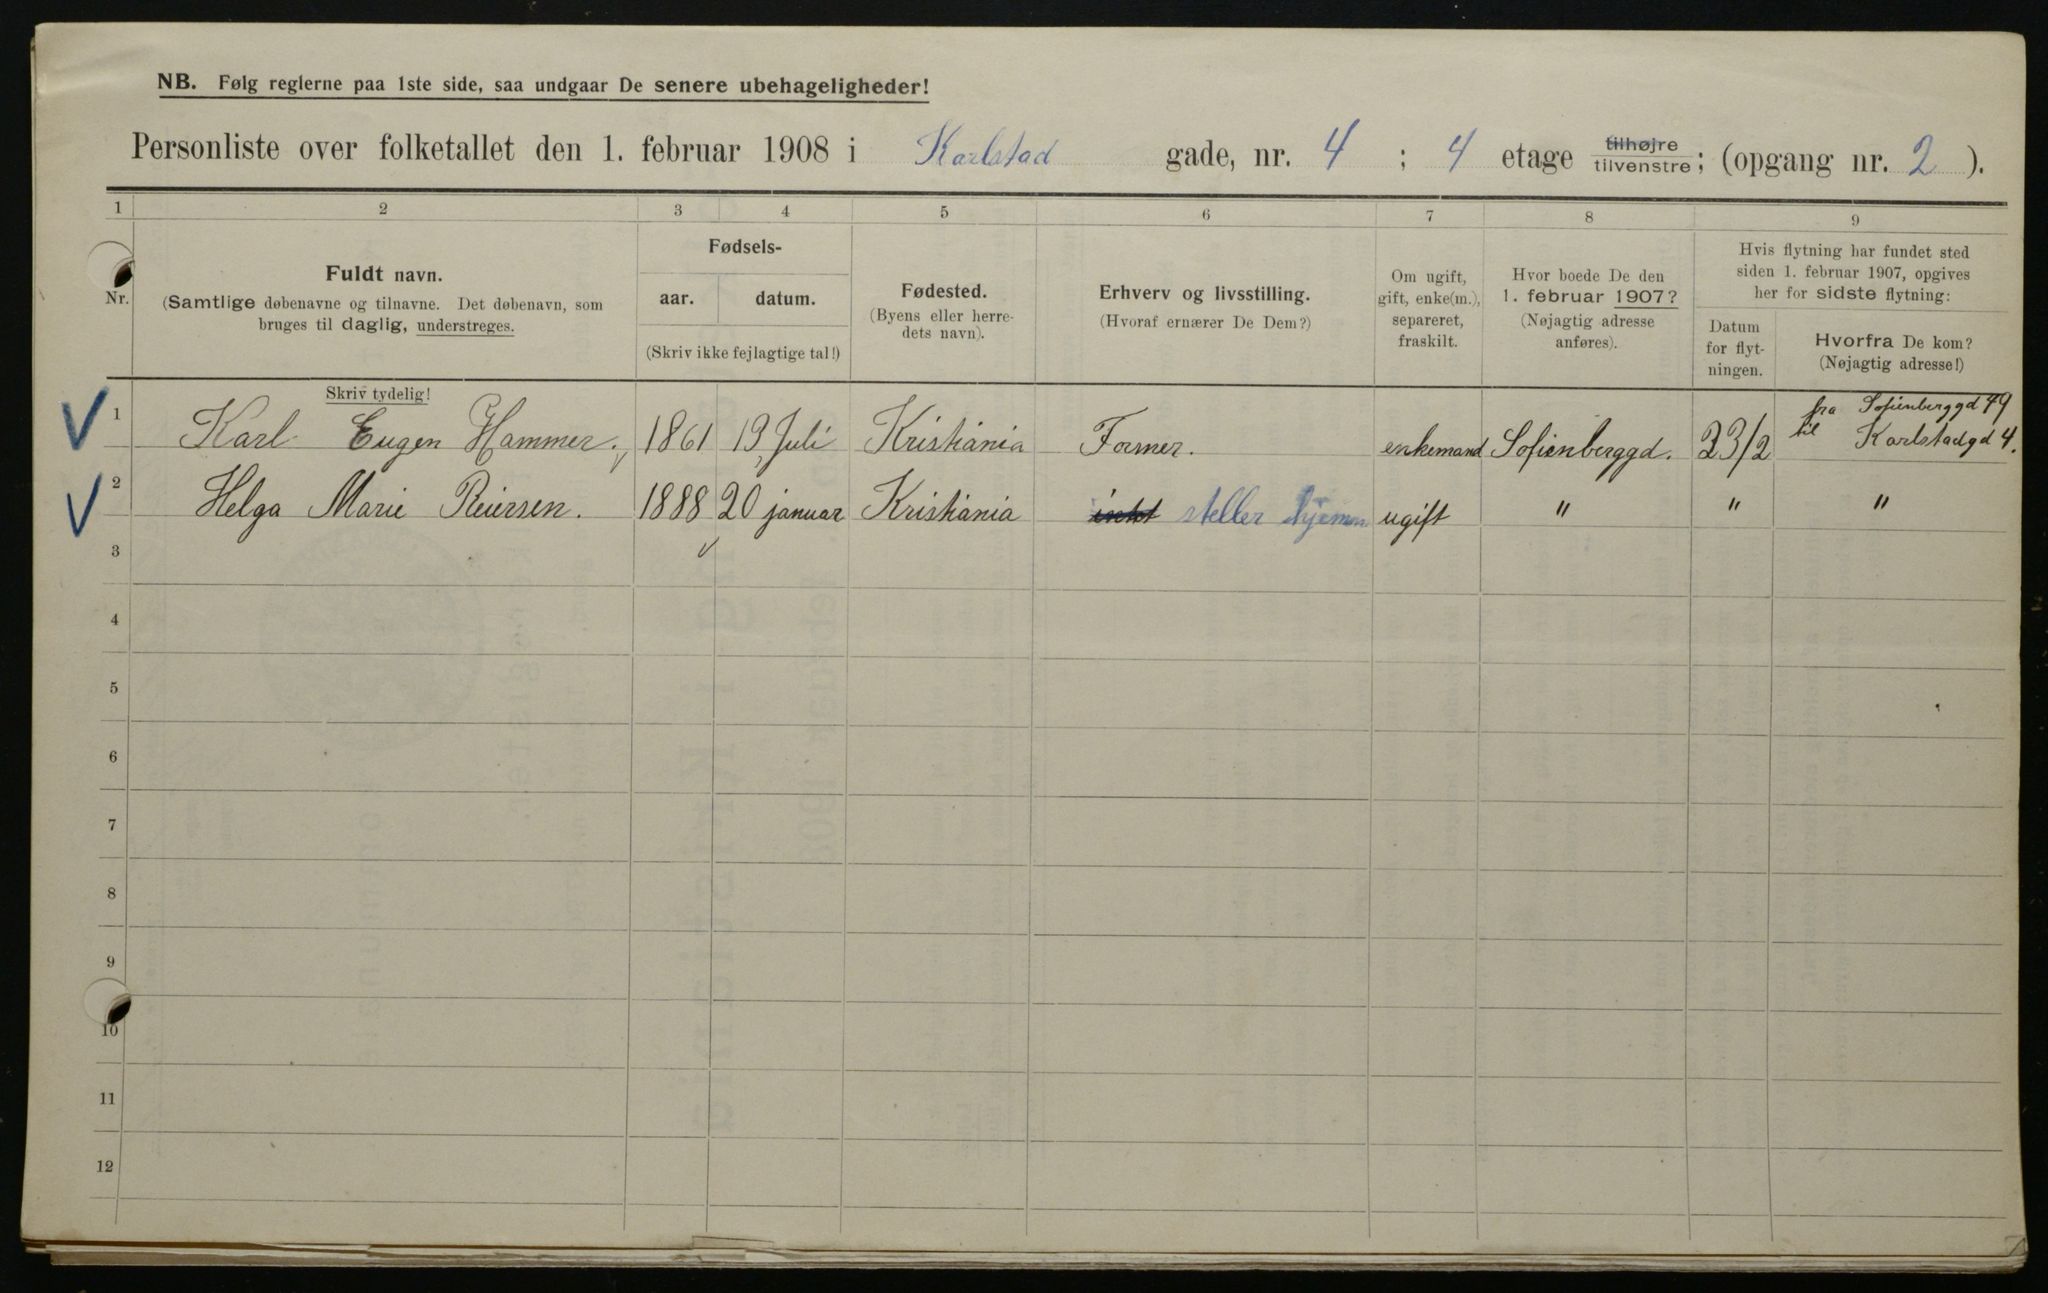 NB. Følg reglerne paa 1ste side, saa undgaar De senere ubehageligheder!
Personliste over folketallet den 1. februar 1908 i Karlstad gade, nr. 4 ; 4 etage tilhøjre tilvenstre; (opgang nr. 2 ).
1 2 3 4 5 6 7 8 9
Nr.
Fuldt navn.
(Samtlige døbenavne og tilnavne. Det døbenavn, som
bruges til daglig, understreges.
Skriv tydelig!
Fødsels-
aar. datum.
(Skriv ikke fejlagtige tal!)
Fødested.
(Byens eller herre-
dets navn).
Erhverv og livsstilling.
(Hvoraf ernærer De Dem?)
Om ugift,
gift, enke(m.),
separeret,
fraskilt.
Hvor boede De den
1. februar 1907?
(Nøjagtig adresse
anføres).
Hvis flytning har fundet sted
siden 1. februar 1907, opgives
her for sidste flytning:
Datum
for flyt-
ningen.
Hvorfra De kom?
(Nøjagtig adresse!)
1 Karl Eugen Hammer. 1861 19 Juli Kristiania Former. enkemand Sofienberggd. 23/2 fra Sofienberggd 49
til Karlstadgd 4.
2 Helga Marie Reiersen. 1888 20 januar Kristiania intet steller hjemm ugift " " "
3
4
5
6
7
8
9
10
11
12